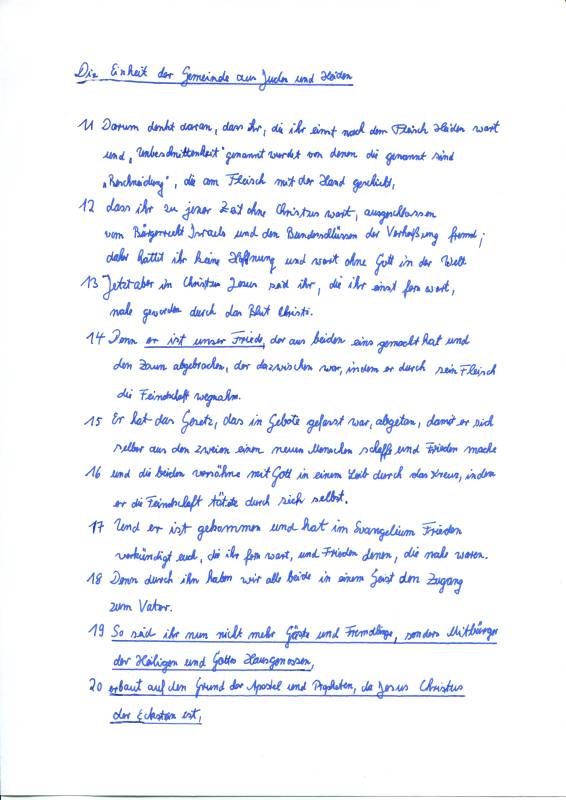 Die Einheit der Gemeinde aus Juden und Heiden
11 Darum denkt daran, dass ihr, die ihr einst nach dem Fleisch Heiden wart
und „Unbeschnittenheit“ genannt wurdet von denen die genannt sind
„Beschneidung“, die am Fleisch mit der Hand geschieht,
12 dass ihr zu jener Zeit ohne Christus wart, ausgeschlossen
vom Bürgerrecht Israels und den Bundesschlüssen der Verheißung fremd;
daher hattet ihr keine Hoffnung und wart ohne Gott in der Welt
13 Jetzt aber in Christus Jesus seid ihr, die ihr einst fern wart,
nahe geworden durch das Blut Christi.
14 Denn er ist unser Friede, der aus beiden eins gemacht hat und
den Zaun abgebrochen, der dazwischen war, indem er durch sein Fleisch
die Feindschaft wegnahm.
15 Er hat das Gesetz, das in Gebote gefasst war, abgetan, damit er sich
selber aus den zweien einen neuen Menschen schaffe und Frieden mache
16 und die beiden versöhne mit Gott in einem Leib durch das Kreuz, indem
er die Feindschaft tötete durch sich selbst.
17 Und er ist gekommen und hat im Evangelium Frieden
verkündigt euch, die ihr fern wart, und Frieden denen, die nahe waren.
18 Denn durch ihn haben wir alle beide in einem Geist den Zugang
zum Vater.
19 So seid ihr nun nicht mehr Gäste und Fremdlinge, sondern Mitbürger
der Heiligen und Gottes Hausgenossen,
20 erbaut auf den Grund der Apostel und Propheten, da Jesus Christus
der Eckstein ist,